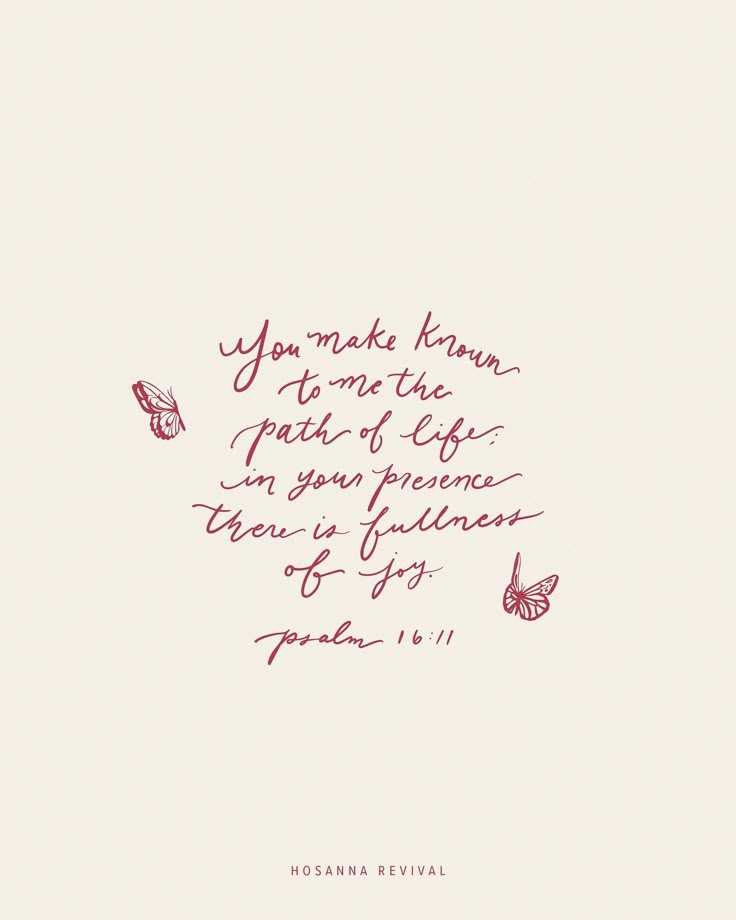 You make known
to me the
path of life;
in your presence
there is fullness
of joy.
psalm 16:11
HOSANNA REVIVAL